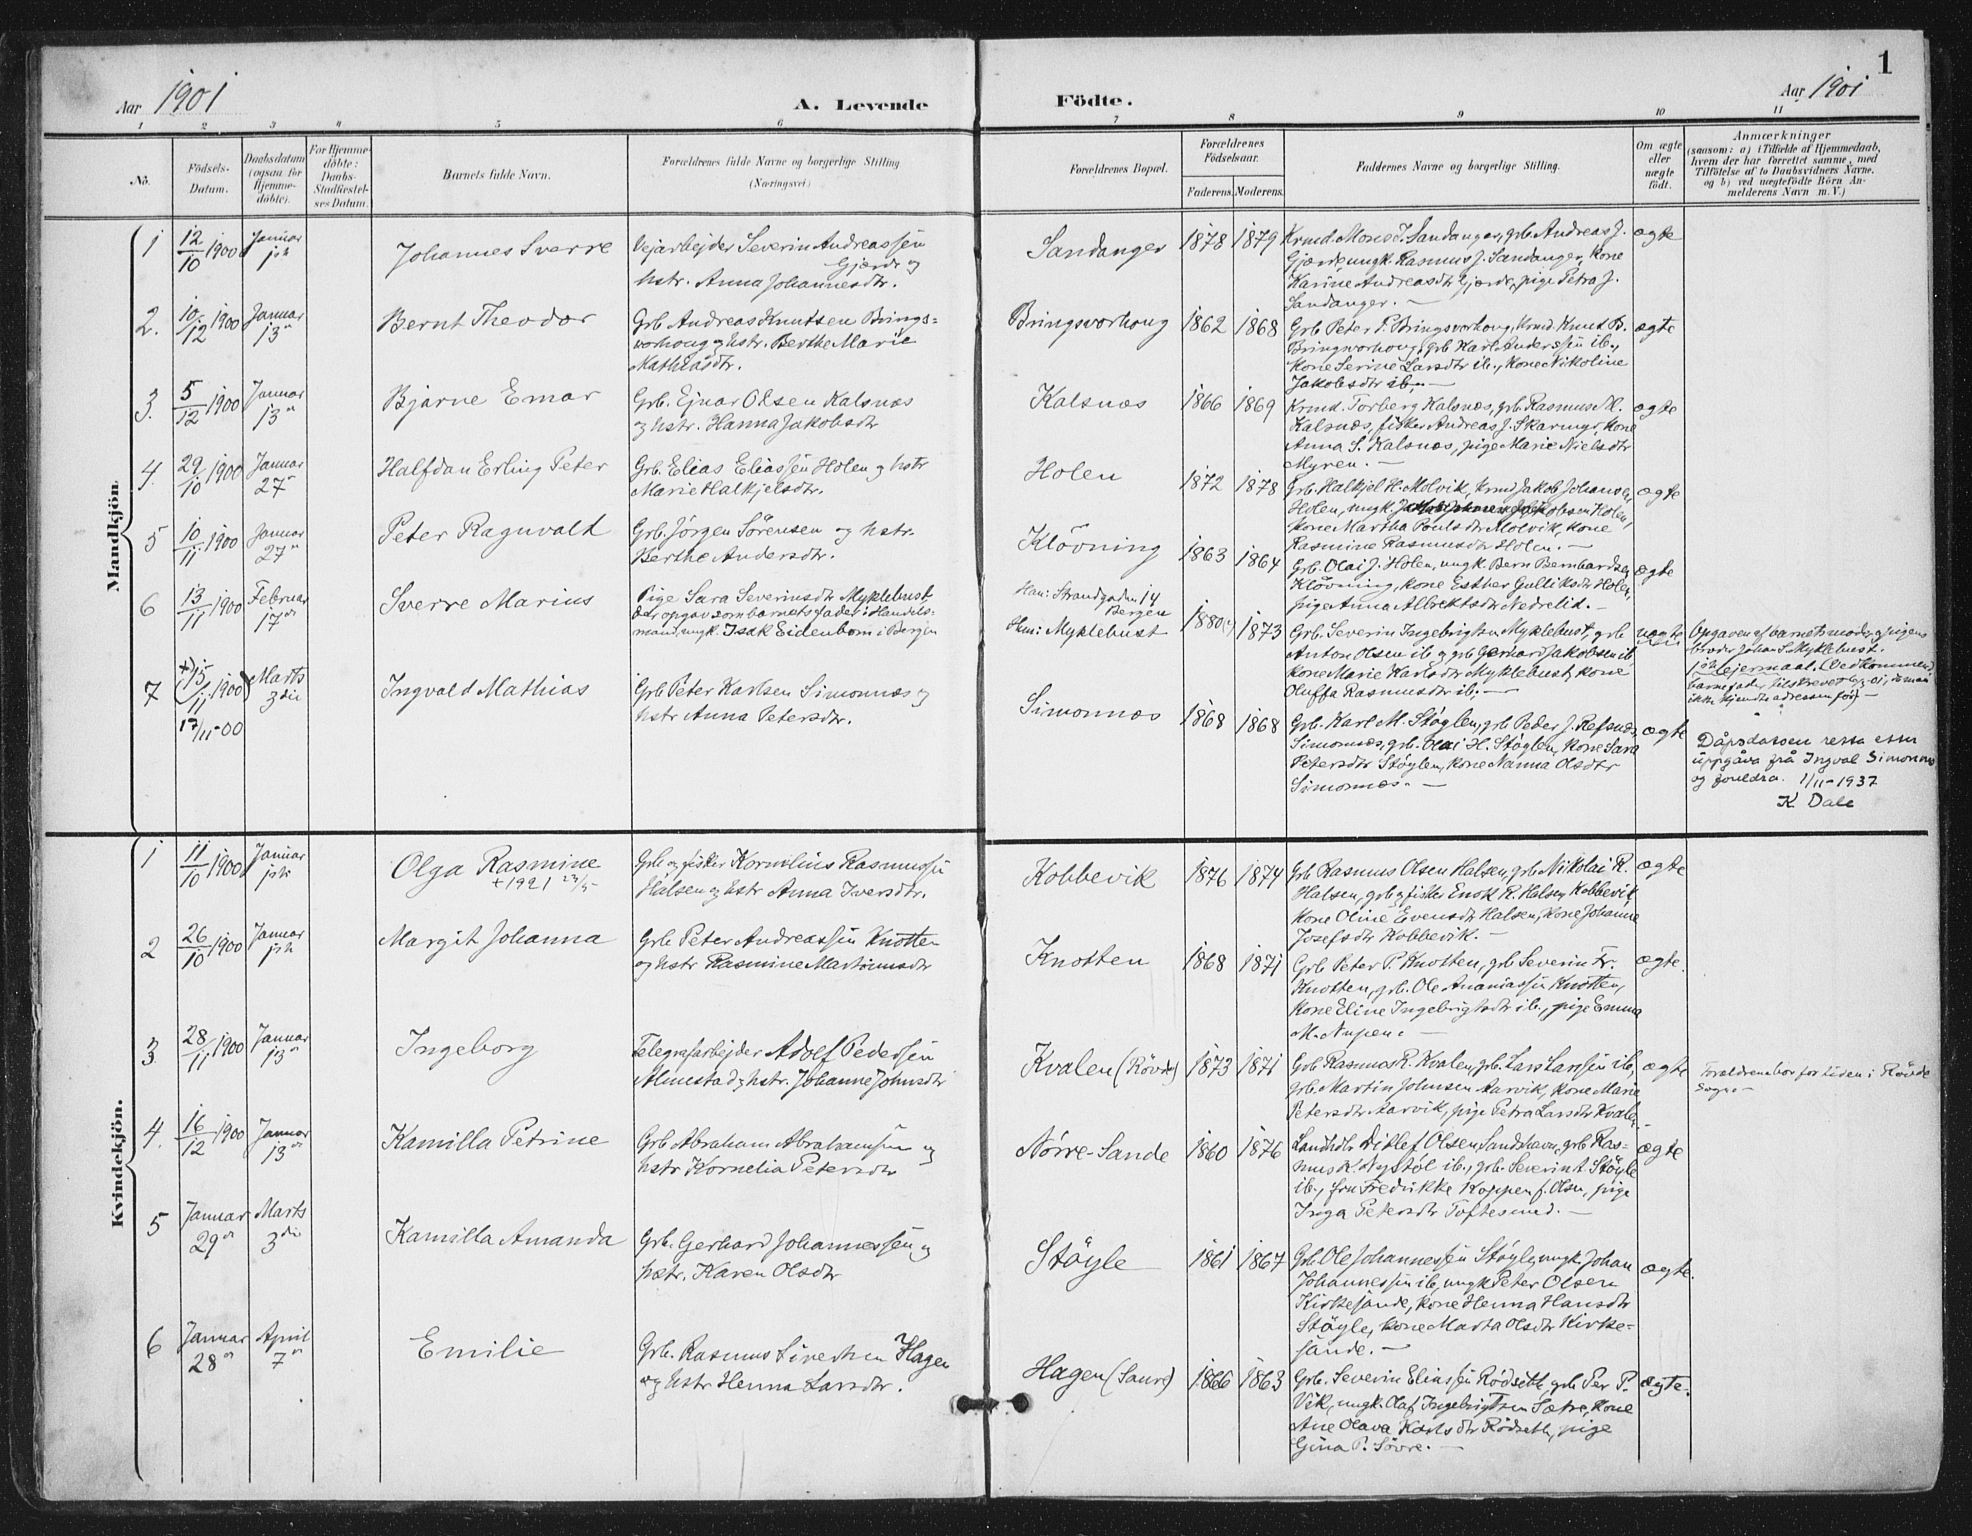 1
Aar 1901
A. Levende
Födte.
Aar 1901
1 2 3 4 5 6 7 8 9 10 11
No.
Födsels-
Datum.
Daabsdatum
(ogsaa for
Hjemme-
döbte).
For Hjemme-
döbte:
Daabs-
Stadfæstel-
ses Datum.
Barnets fulde Navn.
Forældrenes fulde Navne og borgerlige Stilling
(Næringsvei)
Forældrenes Bopæl.
Forældrenes
Födselsaar.
Faderens. Moderens.
Faddernes Navne og borgerlige Stilling.
Om ægte
eller
uægte
födt.
Anmærkninger
(saasom: a) i Tilfælde af Hjemmedaab,
hvem der har forrettet samme, med
Tilföielse af to Daabsvidners Navne,
og b) ved uægtefödte Börn An-
melderens Navn m. V.)
Mandkjön.
1 12/10 1900 Januar 1ste
Johannes Sverre
Vejarbejder Severin Andreassen
Gjærde og
hstr. Anna Johannesdtr.
Sandanger 1878 1879
Krmd. Mons J. Sandanger, grb. Andreas J.
Gjærde, ungk. Rasmus J. Sandanger, kone
Karine Andreasdtr Gjærde, pige Petra J.
Sandanger. —
ægte
2. 10/12 1900 Januar 13de
Bernt Theodor
Grb. Andreas Knutsen Brings-
vorhoug og hstr. Berthe Marie
Mathiasdtr.
Bringsvorhoug 1862 1868
Grb Peter P. Bringsvorhoug, krmd. Knut B.
Bringsvorhoug, grb Karl Anderssen ib.,
kone Serine Larsdtr ib., kone Nikoline
Jakobsdtr ib. —
ægte
3. 5/12 1900 Januar 13de
Bjarne Emar
Grb. Ejnar Olsen Kalsnæs
og hstr. Hanna Jakobsdtr
Kalsnæs 1866 1869
Krmd. Torberg Kalsnæs, grb. Rasmus M.
Kalsnæs, fisker Andreas J. Skarmyr, kone
Anna S. Kalsnæs, pige Marie Nielsdtr
Myren. —
ægte
4. 29/10 1900 Januar 27de
Halfdan Erling Peter
Grb. Elias Eliassen Holen og hstr
Marie Halkjelsdtr.
Holen 1872 1878
Grb. Halkjel H. Molvik, krmd Jakob Johansen
Holen, ungk. Jakobsen Holen,
kone Martha Poulsdtr Molvik, kone
Rasmine Rasmusdtr Holen. —
ægte
5 10/11 1900 Januar 27de
Peter Ragnvald
Grb. Jörgen Sörensen og hstr.
Berthe Andersdtr.
Klövning 1863 1864
Grb. Olai J. Holen, ungk Bern Bernhardsen
Klövning, kone Esther Gulliksdtr Holen,
pige Anna Albrektsdtr Nedrelid. —
ægte
6 13/11 1900 Februar 17de
Sverre Marius
Pige Sara Severinsdtr Myklebust,
der opgav som barnets fader: Handels-
mand, ungk. Isak Eidenbom i Bergen
Han: Strandgaden 14
Bergen
Hun: Myklebust 1880(?) 1873
Grb. Severin Ingebrigtsen Myklebust, grb.
Anton Olsen ib. og grb Gerhard Jakobsen ib.
kone Marie Karlsdtr Myklebust, kone
Oluffa Rasmusdtr ib. —
uægte
Opgaven af barnets moder og pigens
broder Johan S. Myklebust.
1ste Lejermaal.
7 15/11 1900 Marts 3die
17/11-00
Ingvald Mathias
Grb Peter Karlsen Simonnæs og
hstr Anna Petersdtr.
Simonnæs 1868 1868
Grb. Karl M. Stöylen, grb Peder J. Refsnes
Simonnæs, grb. Olai H. Stöylen, kone Sara
Petersdtr Stöylen, kone Nanna Olsdtr
Simonnæs. —
ægte
Dåpsdatoen retta etter
uppgåva frå Ingval Simonnes
og foreldra. 1/11-1937
K Dale
Kvindekjön.
1 11/10 1900 Januar 1ste
Olga Rasmine
+ 1921 23/5
Grb og fisker Kornelius Rasmussen
Halsen og hstr Anna Iversdtr.
Kobbevik 1876 1874
Grb Rasmus Olsen Halsen, grb Nikolai R.
Halsen, grb og fisker Enok R. Halsen Kobbevik
kone Oline Evensdtr Halsen, kone Johanne
Josefsdtr Kobbevik. —
ægte
2 26/10 1900 Januar 1ste
Margit Johanna
Grb Peter Andreassen Knotten
og hstr Rasmine Martinusdtr
Knotten 1868 1871
Grb Peter P. Knotten, grb Severin Fr.
Knotten, grb. Ole Ananiassen Knotten,
kone Eline Ingebrigtsdtr ib., pige Emma
M. Nupen. —
ægte.
3 28/11 1900 Januar 13de
Ingeborg
Telegrafarbejder Adolf Pedersen
Almestad og hstr. Johanne Johnsdtr
Kvalen (Rövde) 1873 1871
Grb Rasmus R. Kvalen, grb. Lars Larssen ib.,
grb. Martin Johnsen Aarvik, kone Marie
Petersdtr Aarvik, pige Petra Larsdtr Kvalen.
ægte
Forældrene bor for tiden i Rövde
Sogn —
4. 16/12 1900 Januar 13de
Kamilla Petrine
Grb Abraham Abrahamsen og
hstr Kornelia Petersdtr
Nörre-Sande 1860 1876
Landhdlr. Ditlef Olsen Sandshavn, grb. Ras-
mus K. Nystöl ib., grb. Severin A. Stöyle
ib., fru Fredrikke Koppen f. Olsen, pige
Inga Petersdtr Toftesund. —
ægte
5 Januar 29de Marts 3die
Kamilla Amanda
Grb. Gerhard Johannessen og
hstr. Karen Olsdtr
Stöyle 1861 1867
Grb Ole Johannessen Stöyle, ungk. Johan
Johannessen ib., ungk Peter Olsen
Kirkesande, kone Henna Hansdtr
Stöyle, kone Marta Olsdtr Kirke-
sande. —
ægte.
6 Januar 28de April 7de
Emilie
Grb. Rasmus Sivertsen Hagen
og hstr Henna Larsdtr.
Hagen (Saure) 1866 1863
Grb. Severin Eliassen Rödseth, grb Per P.
Vik, ungk. Olaf Ingebrigtsen Sætre, kone
Ane Olava Karlsdtr Rödseth, pige
Gina P. Sövre. —
ægte.